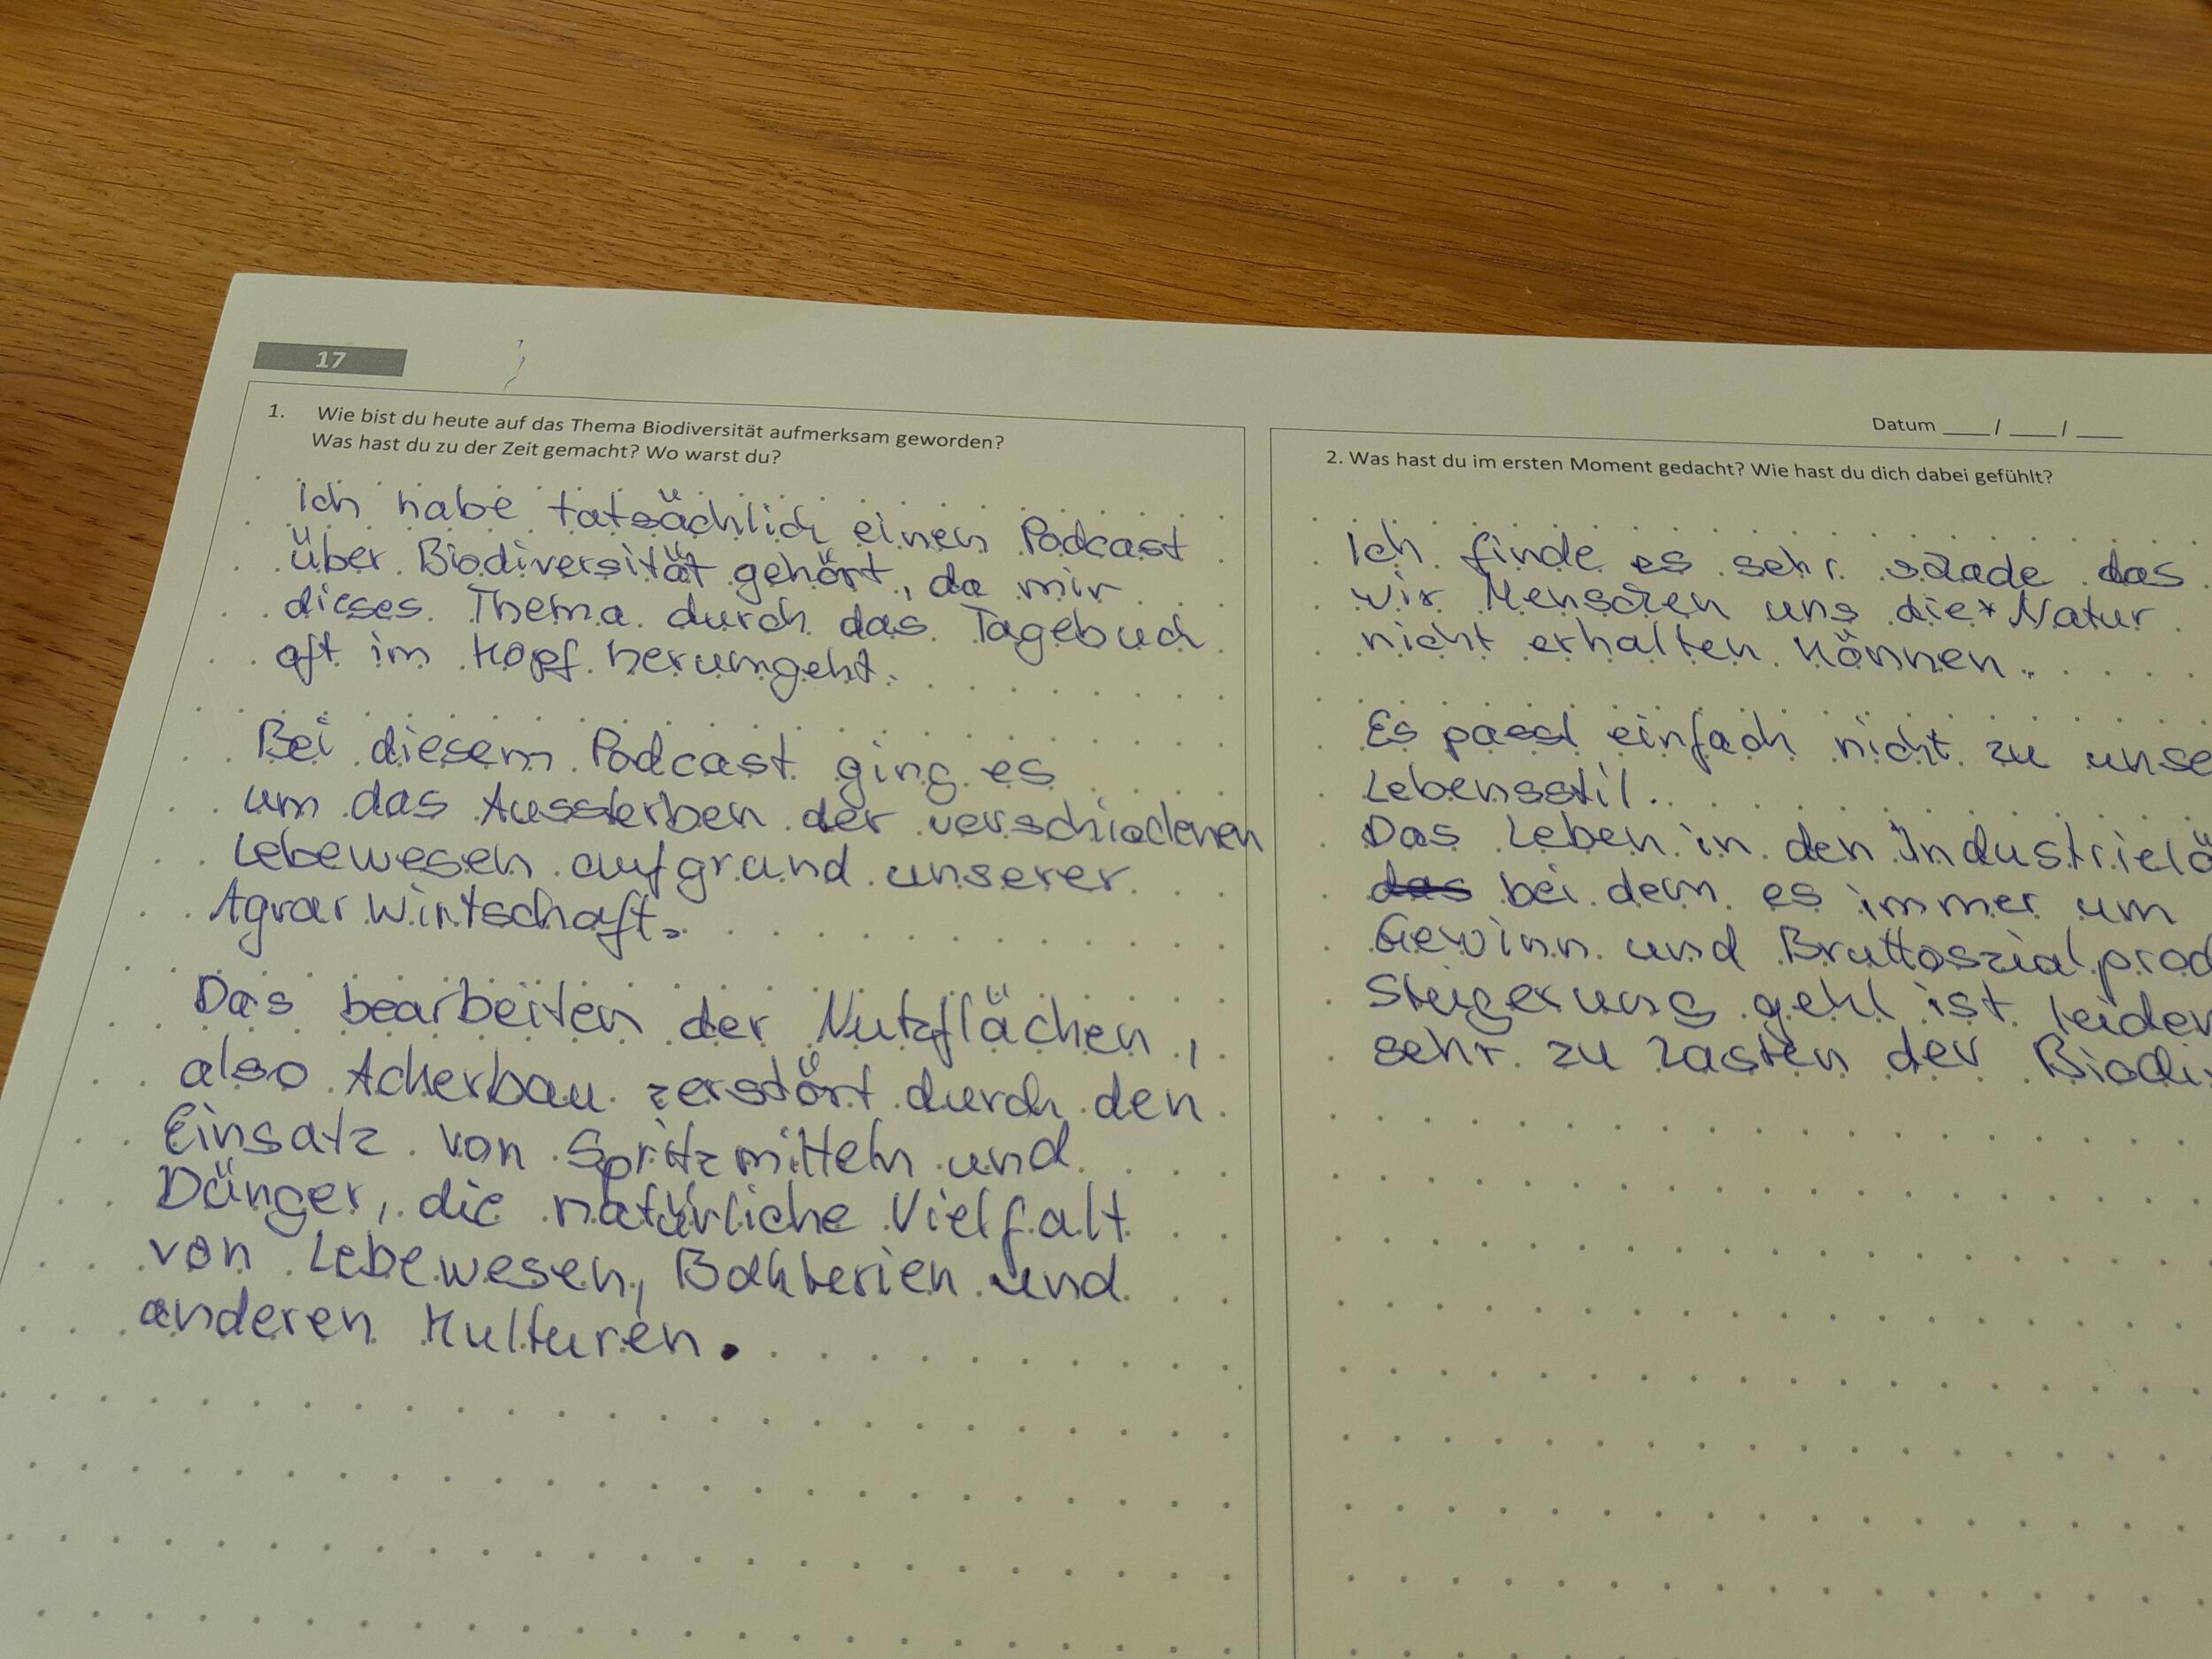 17
1. Wie bist du heute auf das Thema Biodiversität aufmerksam geworden?
Was hast du zu der Zeit gemacht? Wo warst du?
Ich habe tatsächlich einen Podcast
über Biodiversität gehört, da mir
dieses Thema durch das Tagebuch
oft im Kopf herumgeht.
Bei diesem Podcast ging es
um das Aussterben der verschiedenen
Lebewesen aufgrund unserer
Agrarwirtschaft.
Das bearbeiten der Nutzflächen,
also Ackerbau zerstört durch den
Einsatz von Spritzmitteln und
Dünger, die natürliche Vielfalt
von Lebewesen, Bakterien und
anderen Kulturen.
Datum ____/ ____/ ____
2. Was hast du im ersten Moment gedacht? Wie hast du dich dabei gefühlt?
Ich finde es sehr schade das
wir Menschen uns die* Natur
nicht erhalten können.
Es passt einfach nicht zu unse
Lebensstil.
Das Leben in den Industrielä
das bei dem es immer um
Gewinn und Bruttoszialprod
Steigerung geht ist leider
sehr zu lasten der Biodi